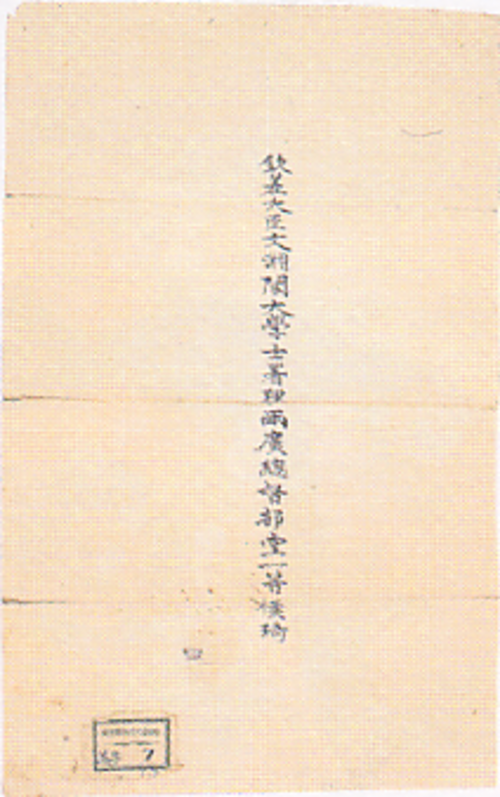 欽差大臣文淵閣大學士署理兩廣總督部堂一等侯琦
7